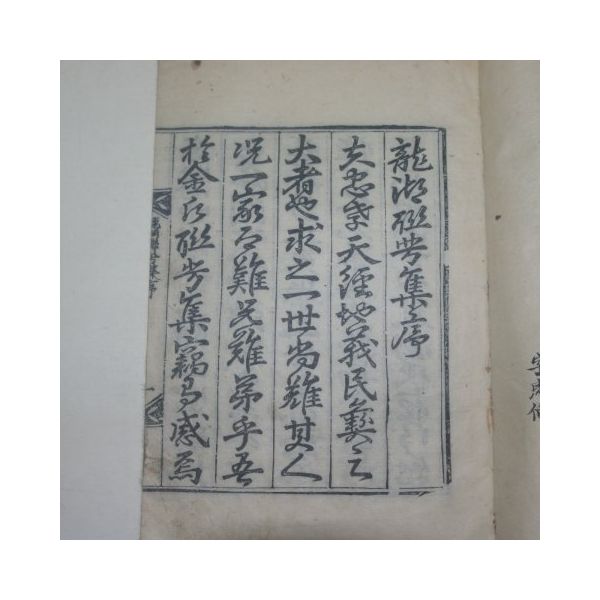 龍湖聯芳集序
夫忠孝天經地義民彝之
大者也求之一世尚難其人
况一家而難兄難弟乎吾
於金氏聯芳集竊有感焉